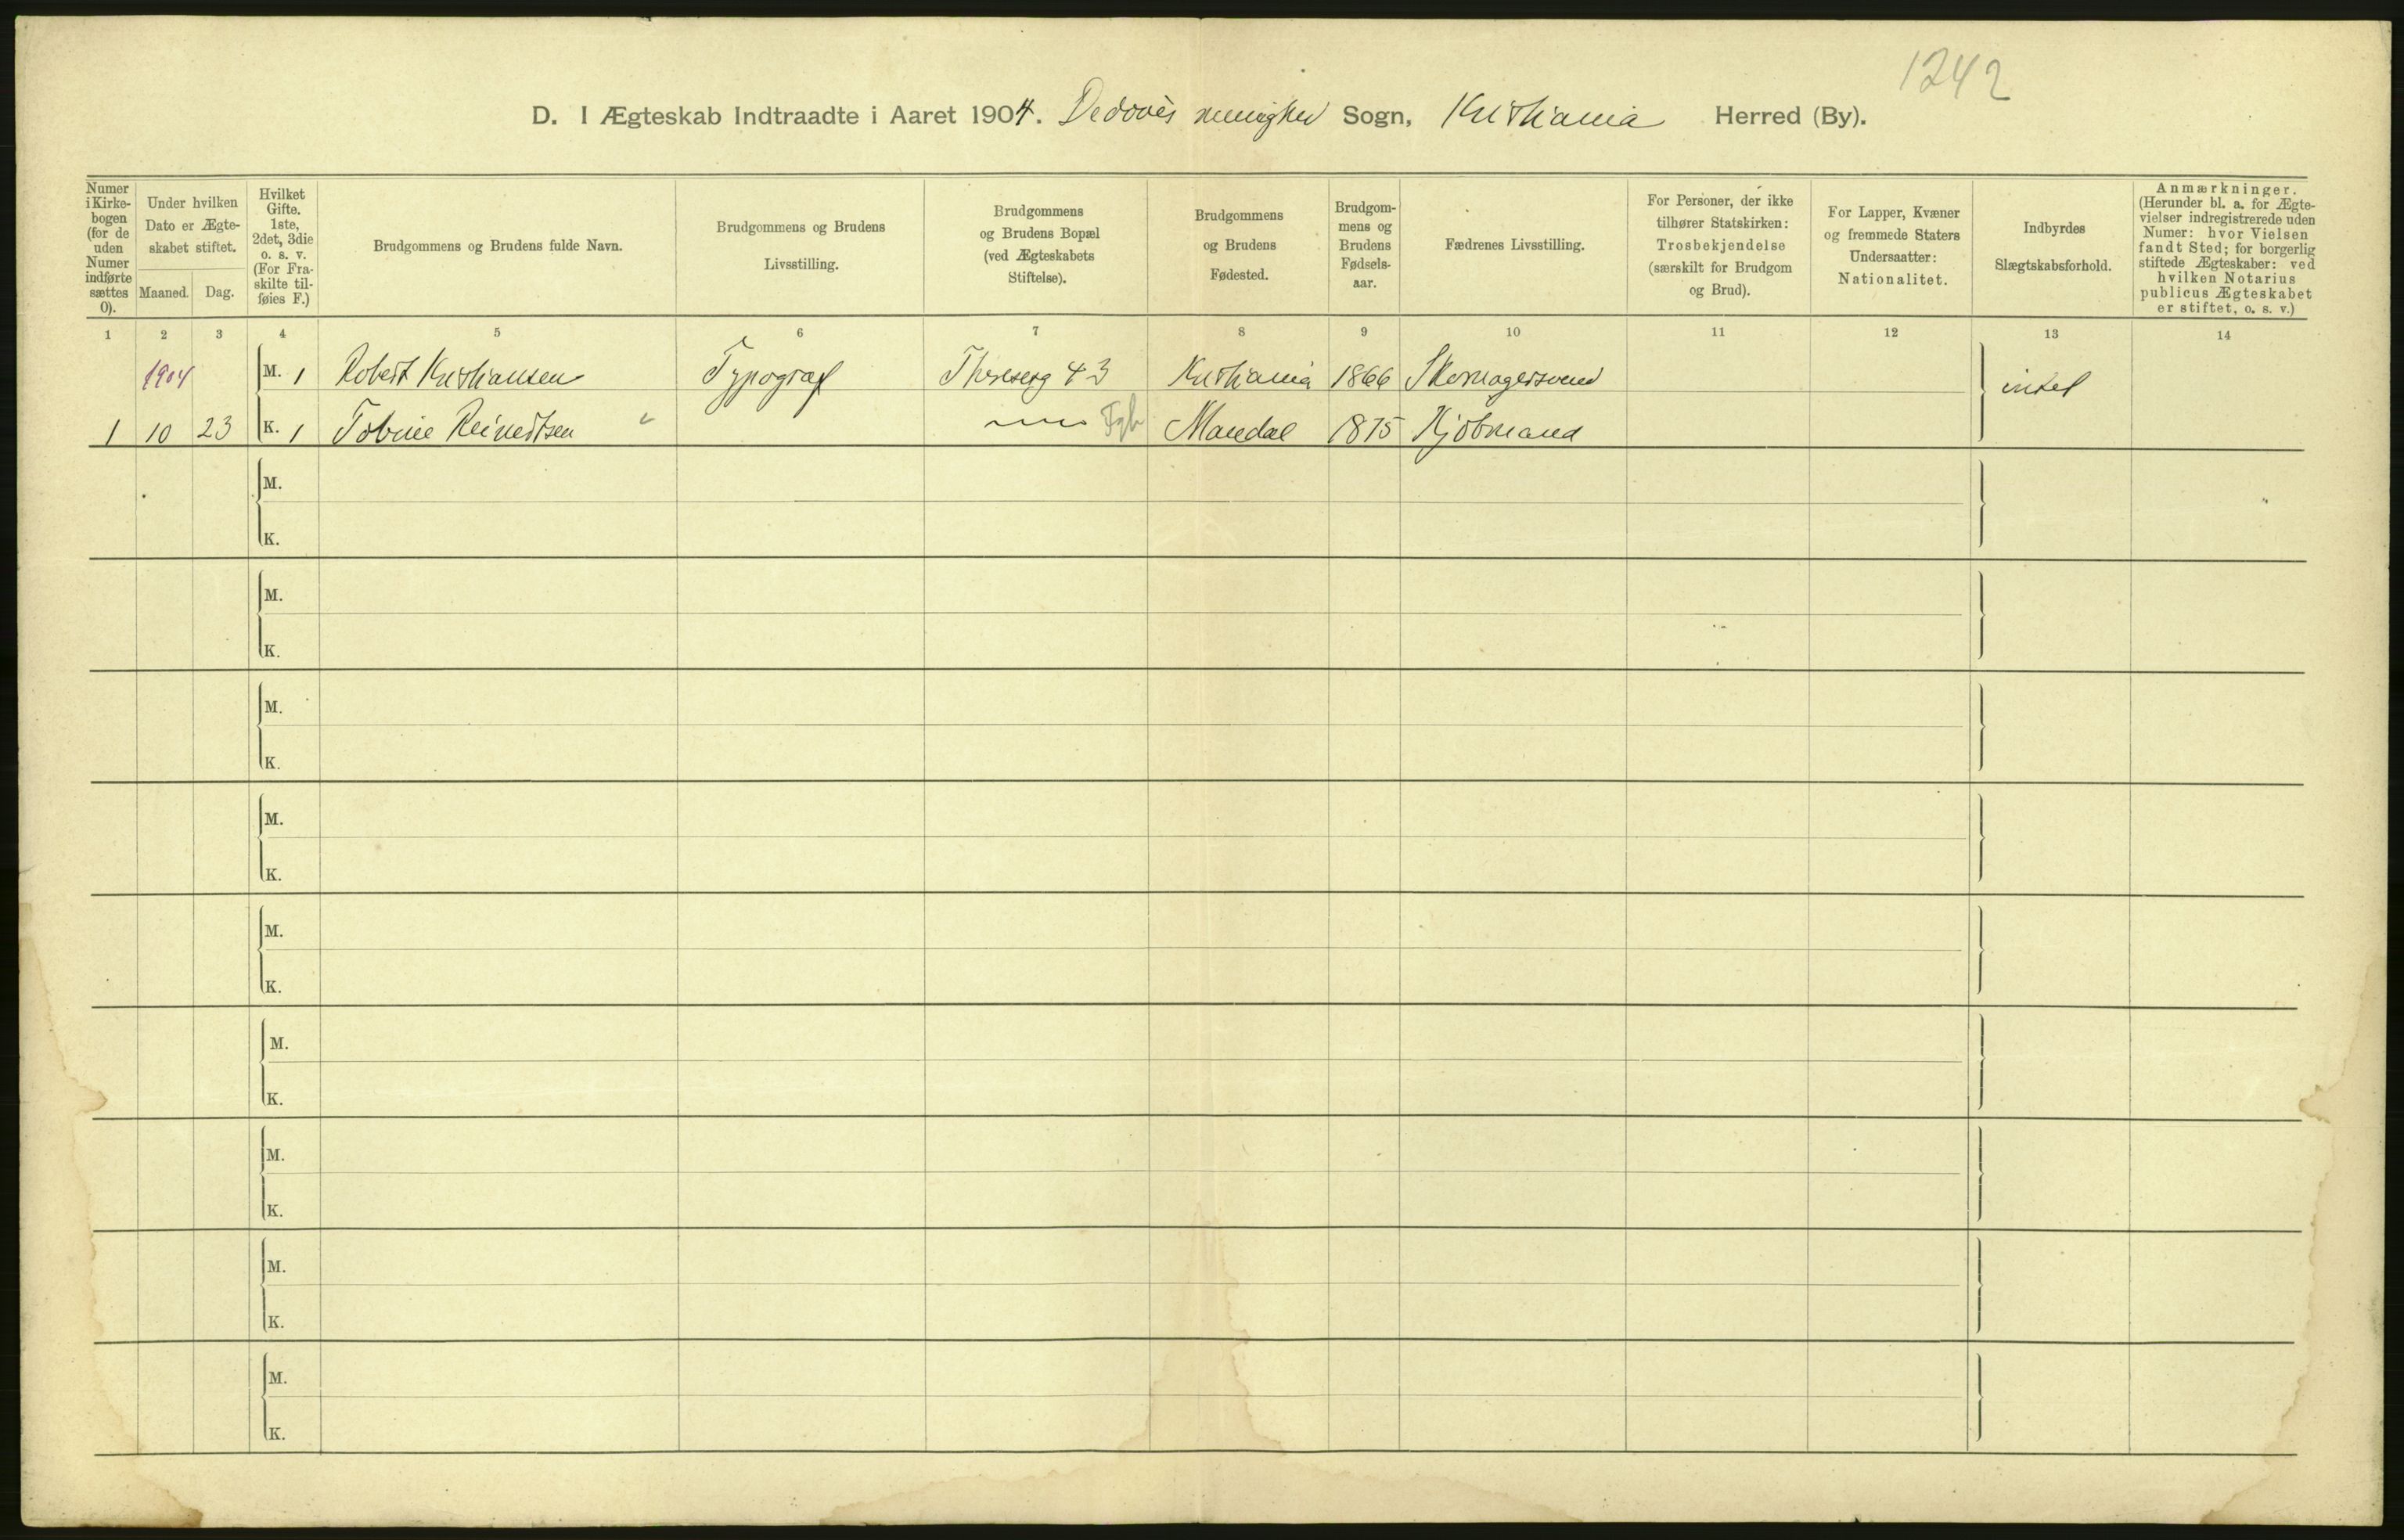 1242
D. I Ægteskab Indtraadte i Aaret 1904. Dedøves menighed Sogn, Kristiania Herred (By).
Numer i Kirke-bogen (for de uden Numer indførte sættes 0).
Under hvilken Dato er Ægte-skabet stiftet.
Maaned. Dag.
Hvilket Gifte. 1ste, 2det, 3die o. s. v. (For Fra-skilte til-føies F.)
Brudgommens og Brudens fulde Navn.
Brudgommens og Brudens Livsstilling.
Brudgommens og Brudens Bopæl (ved Ægteskabets Stiftelse).
Brudgommens og Brudens Fødested.
Brudgom-mens og Brudens Fødsels-aar.
Fædrenes Livsstilling.
For Personer, der ikke tilhører Statskirken: Trosbekjendelse (særskilt for Brudgom og Brud).
For Lapper, Kvæner og fremmede Staters Undersaatter: Nationalitet.
Indbyrdes Slægtskabsforhold.
Anmærkninger. (Herunder bl. a. for Ægte-vielser indregistrerede uden Numer: hvor Vielsen fandt Sted; for borgerlig stiftede Ægteskaber: ved hvilken Notarius publicus Ægteskabet er stiftet, o. s. v.)
1 2 3 4 5 6 7 8 9 10 11 12 13 14
1904 M. 1 Robert Kristiansen Typograf Thereseg 43 Kristiania 1866 Skomagersvend intet
1 10 23 K. 1 Tobine Reinertsen Mandal 1875 Kjøbmand
M.
K.
M.
K.
M.
K.
M.
K.
M.
K.
M.
K.
M.
K.
M.
K.
M.
K.